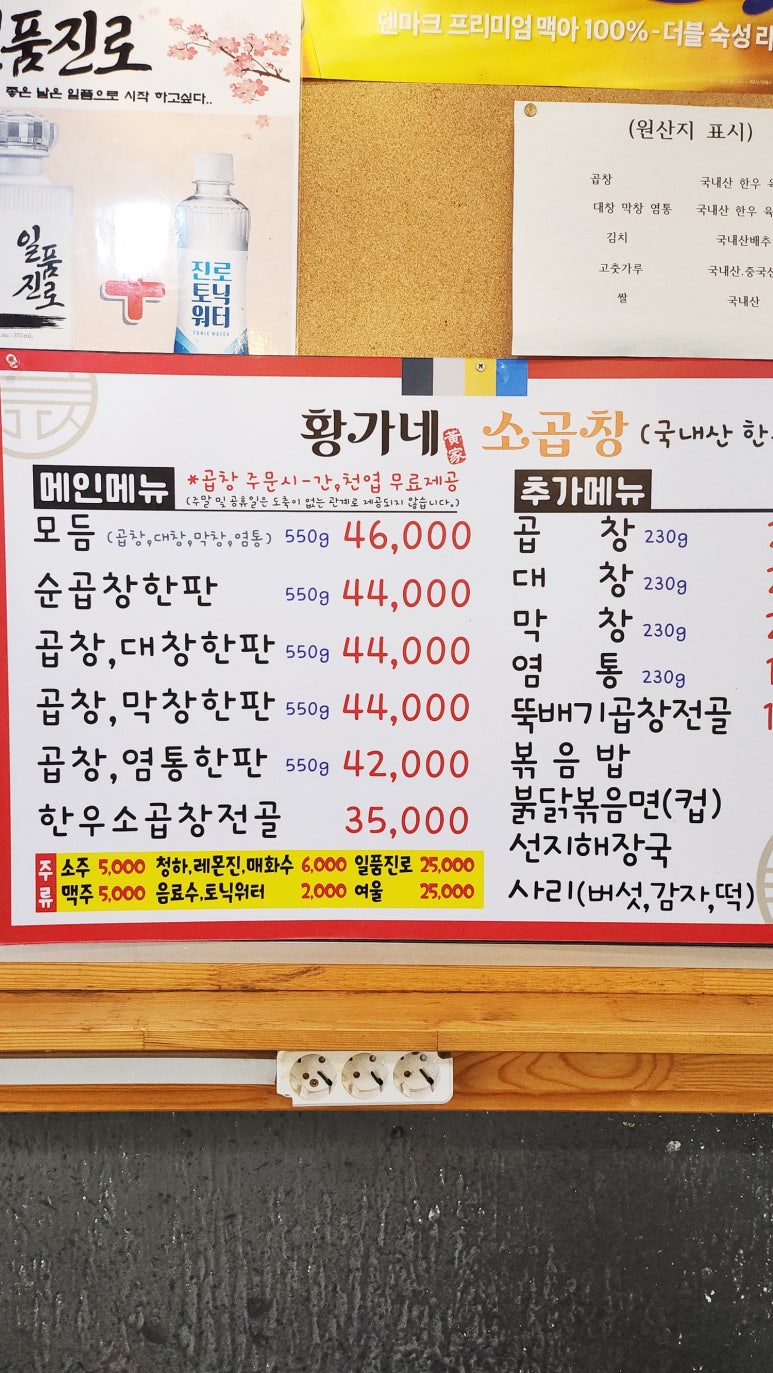 일품진로
좋은 날은 일품으로 시작 하고싶다..
일품
진로
진로
토닉
워터
TONIC WATER
덴마크 프리미엄 맥아 100% - 더블 숙성
(원산지 표시)
곱창 국내산 한우
대창 막창 염통 국내산 한우
김치 국내산배추
고춧가루 국내산.중국산
쌀 국내산
황가네 黃家 소곱창 (국내산
메인메뉴 *곱창 주문시-간,천엽 무료제공
(주말 및 공휴일은 도축이 없는 관계로 제공되지 않습니다.)
모듬 (곱창,대창,막창,염통) 550g 46,000
순곱창한판 550g 44,000
곱창,대창한판 550g 44,000
곱창,막창한판 550g 44,000
곱창,염통한판 550g 42,000
한우소곱창전골 35,000
주류
소주 5,000 청하,레몬진,매화수 6,000 일품진로 25,000
맥주 5,000 음료수,토닉워터 2,000 여울 25,000
추가메뉴
곱 창 230g
대 창 230g
막 창 230g
염 통 230g
뚝배기곱창전골
볶음밥
붉닭볶음면(컵)
선지해장국
사리(버섯,감자,떡)